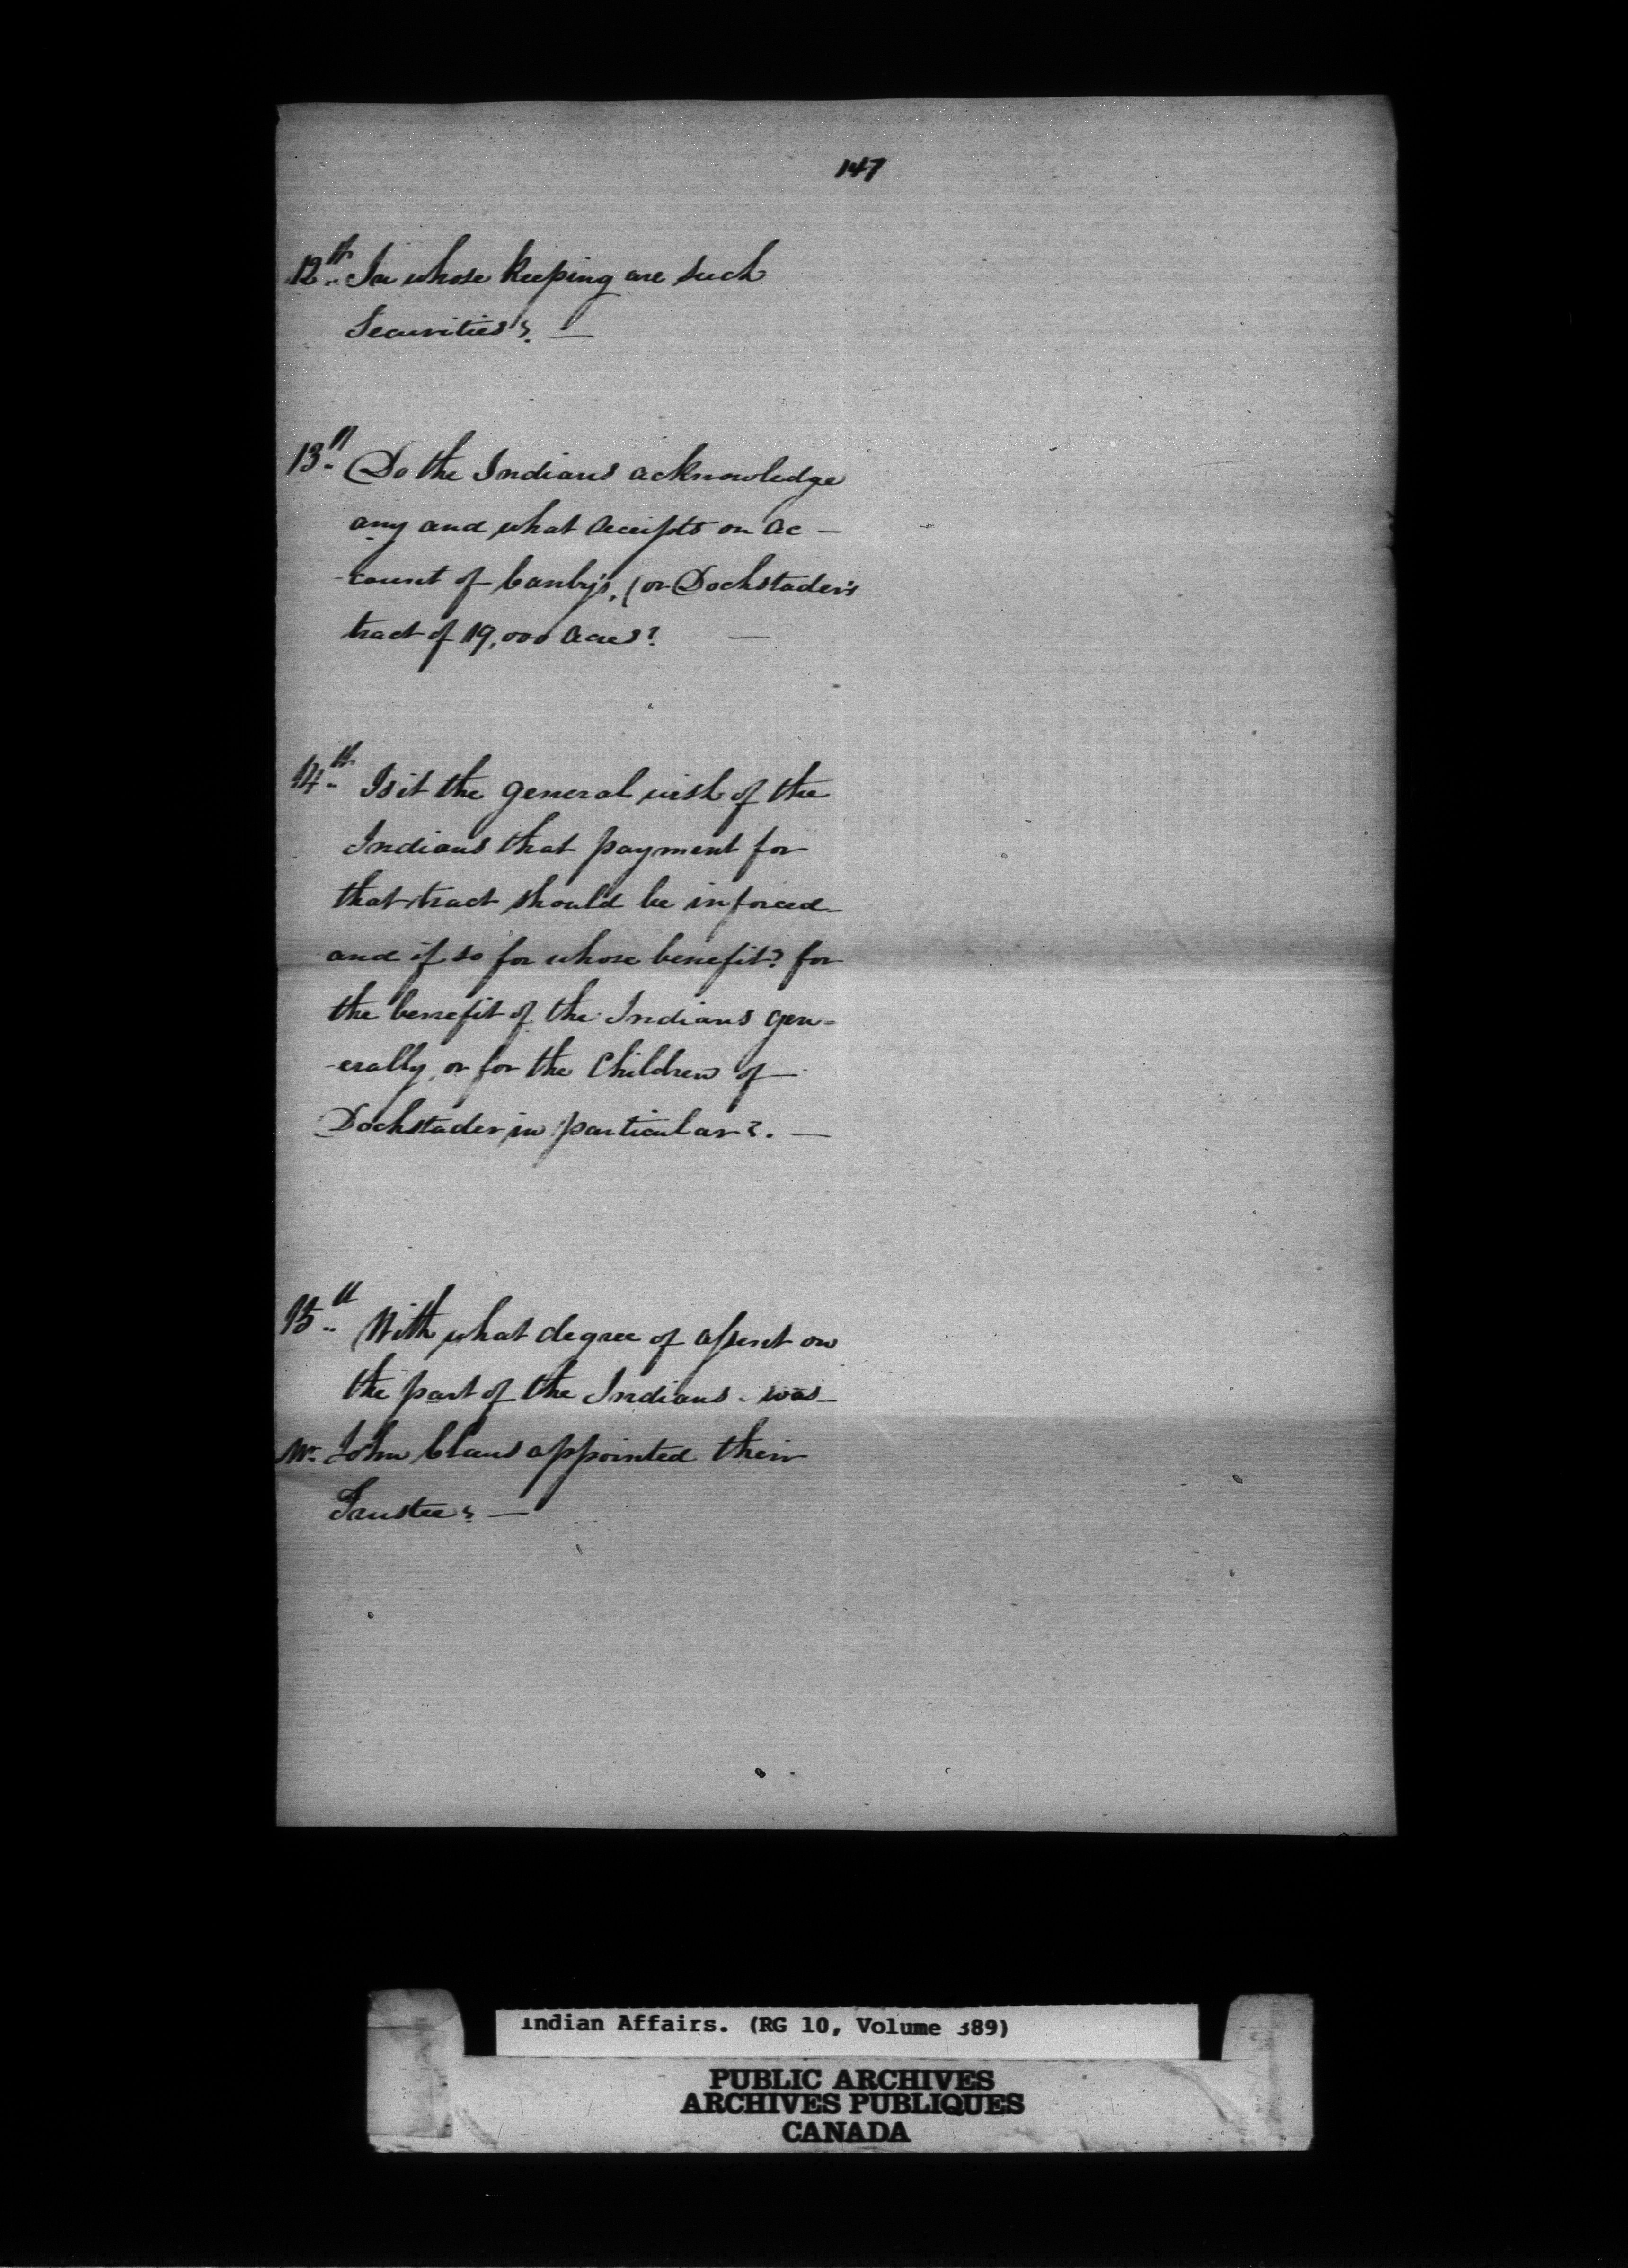 147
12th In whose keeping are such
Securities?. —
13th Do the Indians acknowledge
any and what receipts on ac —
-count of Canby's, (or Dochstader's
tract of 19,000 Acres? —
14th Is it the general wish of the
Indians that payment for
that tract should be inforced
and if so for whose benefit? for
the benefit of the Indians gen=
-erally, or for the Children of
Dochstader in particular?. —
15th With what degree of assent on
the part of the Indians was
Mr. John Claus appointed their
Trustee? —
Indian Affairs. (RG 10, Volume 389)
PUBLIC ARCHIVES
ARCHIVES PUBLIQUES
CANADA